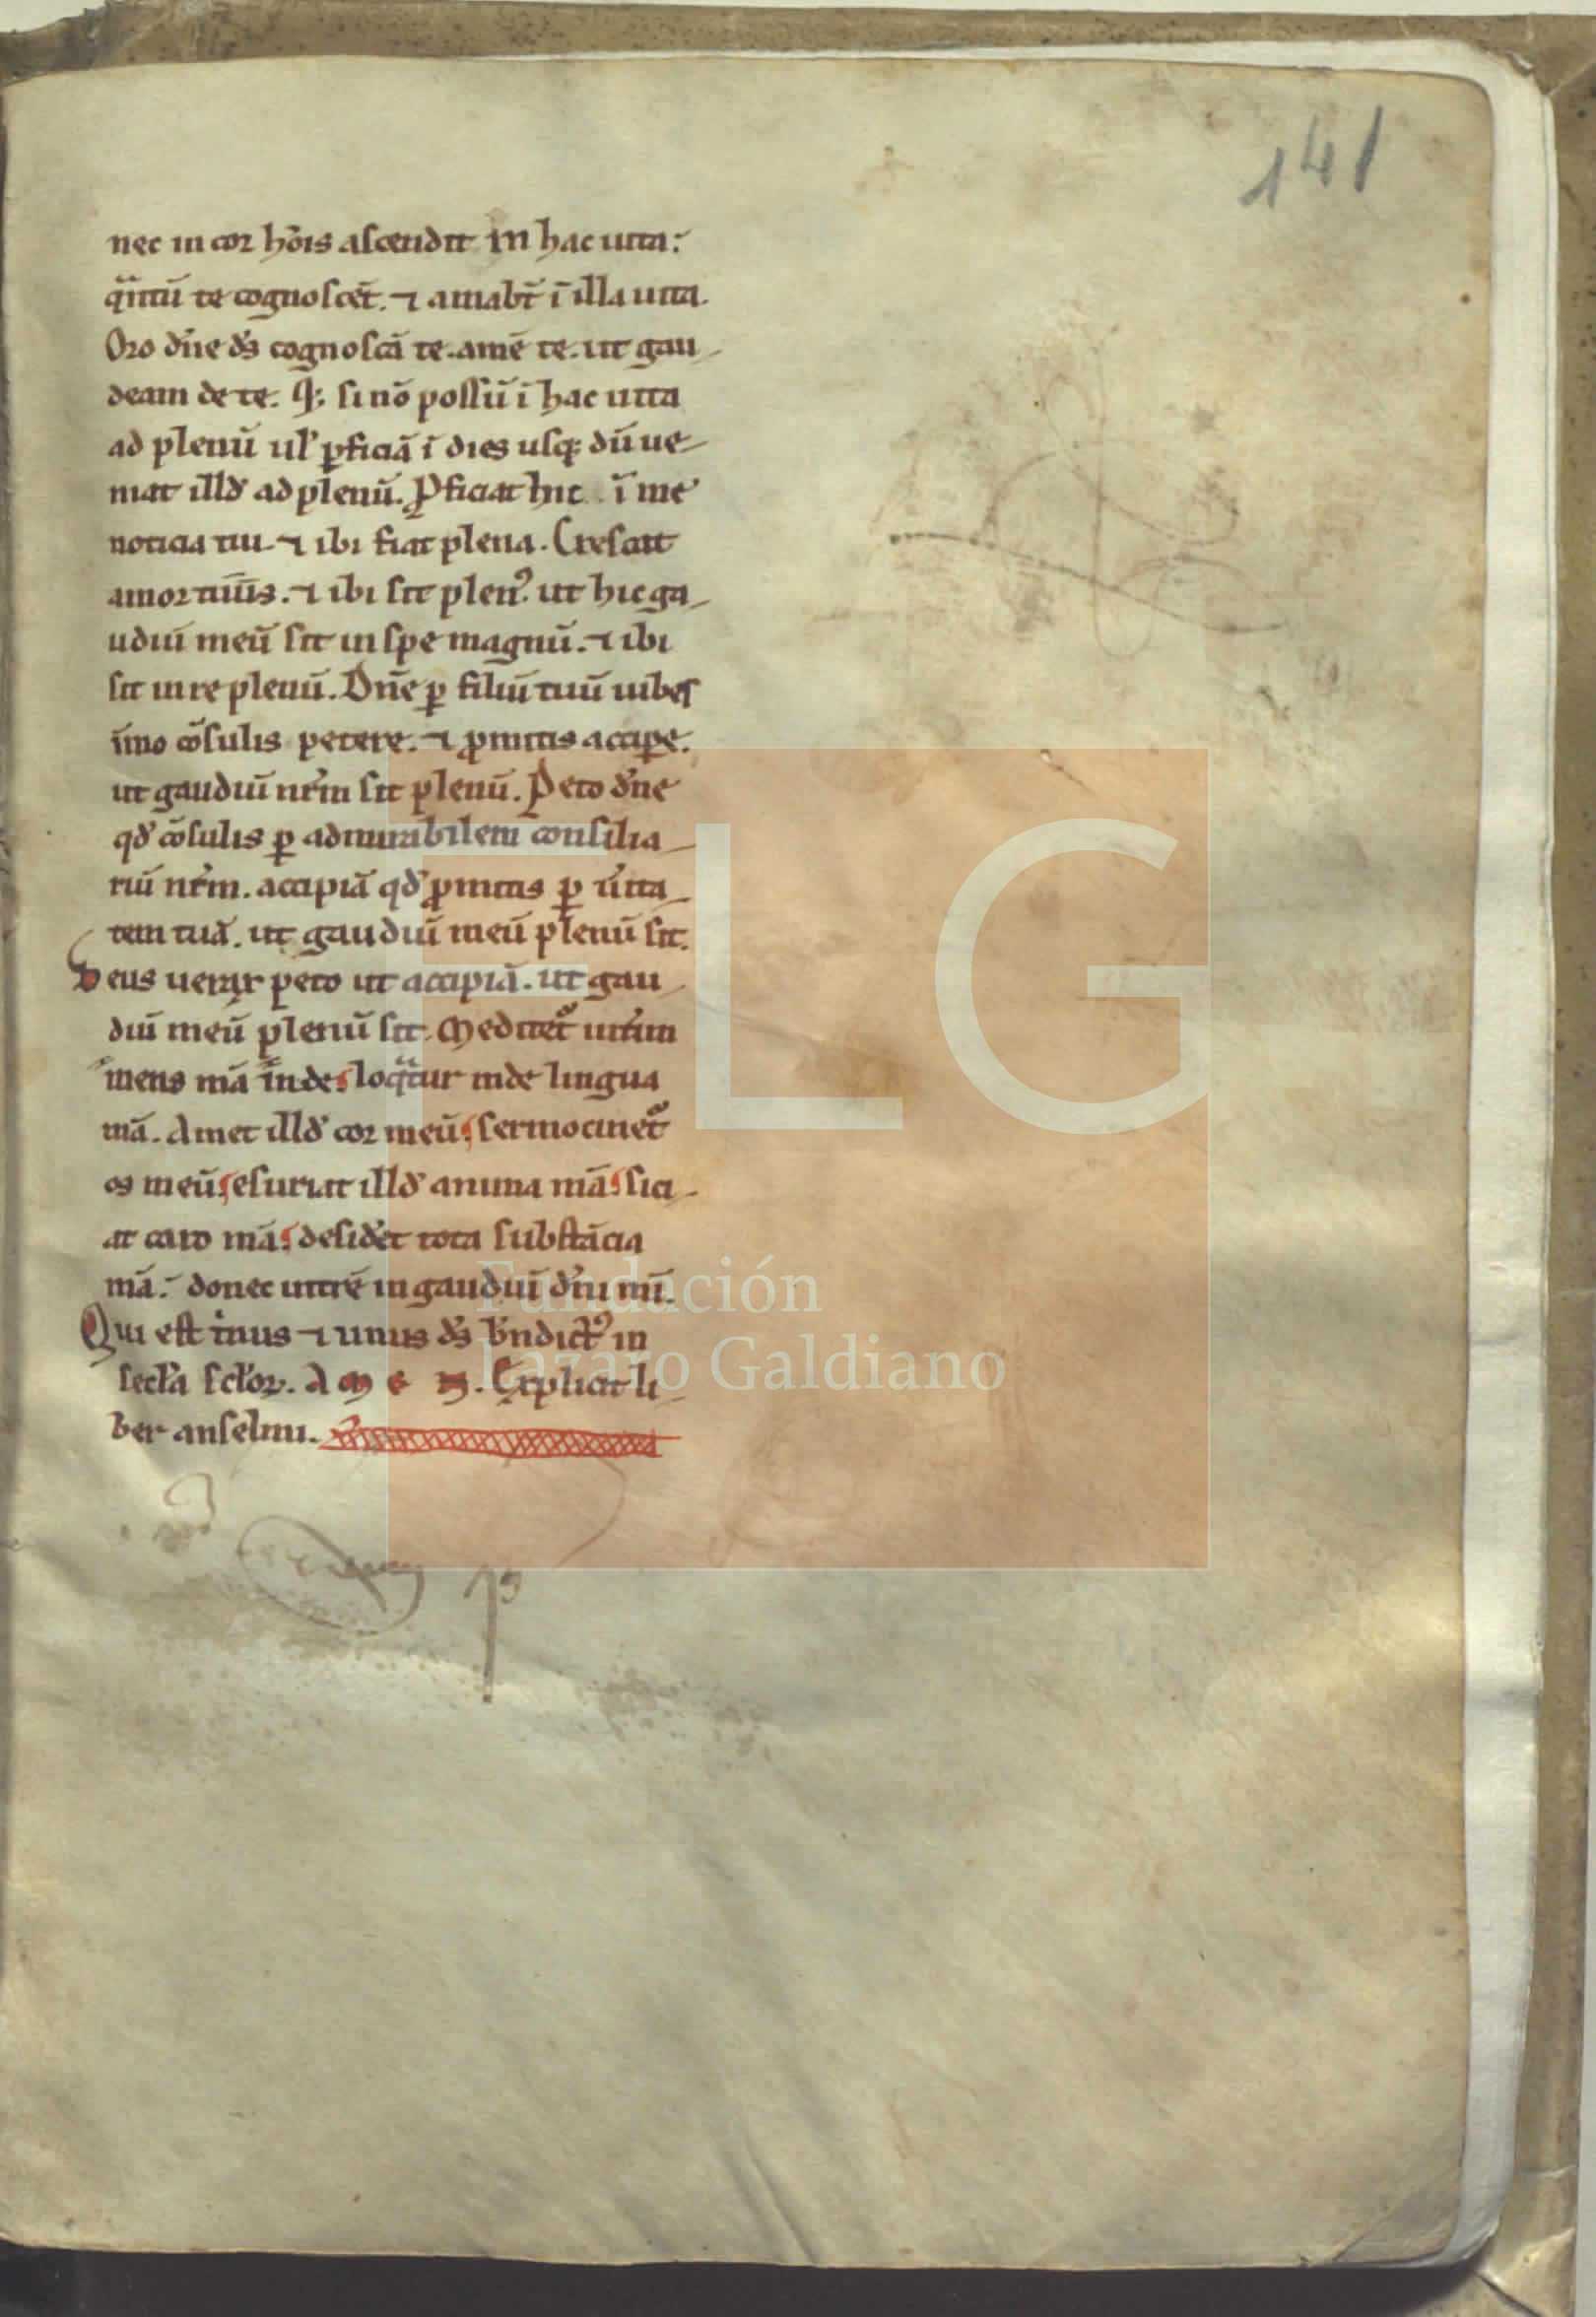 141
nec in cor hōis ascendit in hac uita:
qͣntū te cognoscēt. ⁊ amabt̄ ī illa uita.
Oro dn̄e ds̄ cognoscā te. amē te. ut gau-
deam de te. Q; si nō possū ī hac uita
ad plenū ul' ꝓficiā ī dies usq; dū ue-
niat illd' ad plenū. Ꝓficiat hic ī me
noticia tui ⁊ ibi fiat plena. Crescat
amor tuus. ⁊ ibi sit plen⁹. ut hic ga-
udiū meū sit in spe magnū. ⁊ ibi
sit in re plenū. Dn̄e ꝑ filiū tuū iubes
īmo cōsulis petere. ⁊ ꝓmittis accipe.
ut gaudiū nr̄m sit plenū. Peto dn̄e
qd' cōsulis ꝑ admirabilem consilia-
riū nr̄m. accipiā qd' ꝓmittis ꝑ uĩta-
tem tuā. ut gaudiū meū plenū sit.
Deus uerax peto ut accipiā. ut gau-
diū meū plenū sit. Meditet᷑ int̄im
mens mā inde loqͣtur inde lingua
mā. Amet illd' cor meū sermocinet᷑
os meū esuriat illd' anima mā sici-
at caro mā desid'et tota substācia
mā: donec intrē in gaudiū dn̄i mī.
Qui est trinus ⁊ unus ds̄ bn̄dict⁹ in
secl'a scl'oꝝ. A M E N. Explicit li-
ber anselmi.
FLG
Fundación
Lázaro Galdiano